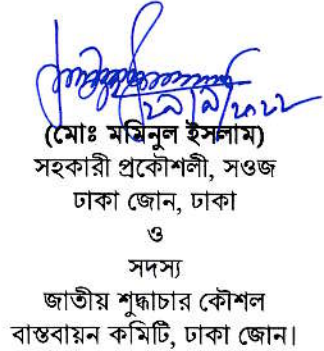 ২৯/৯/২০২২
(মোঃ মমিনুল ইসলাম)
সহকারী প্রকৌশলী, সওজ
ঢাকা জোন, ঢাকা
ও
সদস্য
জাতীয় শুদ্ধাচার কৌশল
বাস্তবায়ন কমিটি, ঢাকা জোন।